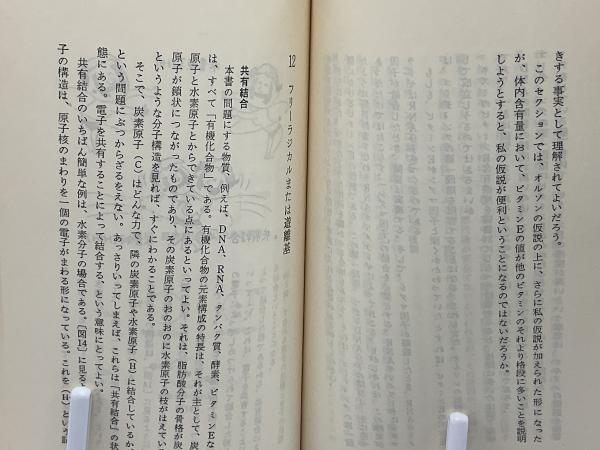 きする事実として理解されてよいだろう。
このセクションでは、オルソンの仮説の上に、さらに私の仮説が加えられた形になった
が、体内含有量において、ビタミンEの値が他のビタミンのそれより格段に多いことを説明
しようとすると、私の仮説が便利ということになるのではないだろうか。
12 フリーラジカルまたは遊離基
共有結合
本書の問題にする物質、例えば、DNA、RNA、タンパク質、酵素、ビタミンEな
は、すべて「有機化合物」である。有機化合物の元素構成の特長は、それが主として、炭
原子と水素原子とからできている点にあるといってよい。それは、脂肪酸分子の骨格が炭
原子が鎖状につながったものであり、その炭素原子のおのおのに水素原子の枝がはえてい
というような分子構造を見れば、すぐにわかることである。
そこで、炭素原子(C)はどんな力で、隣の炭素原子や水素原子(H)に結合しているか、
という問題にぶつからざるをえない。あっさりいってしまえば、これらは「共有結合」の状
態にある。電子を共有することによって結合する、という意味にとってよい。
共有結合のいちばん簡単な例は、水素分子の場合である。〔図14〕に見る
子の構造は、原子核のまわりを一個の電子がまわる形になっている。これを(H)という